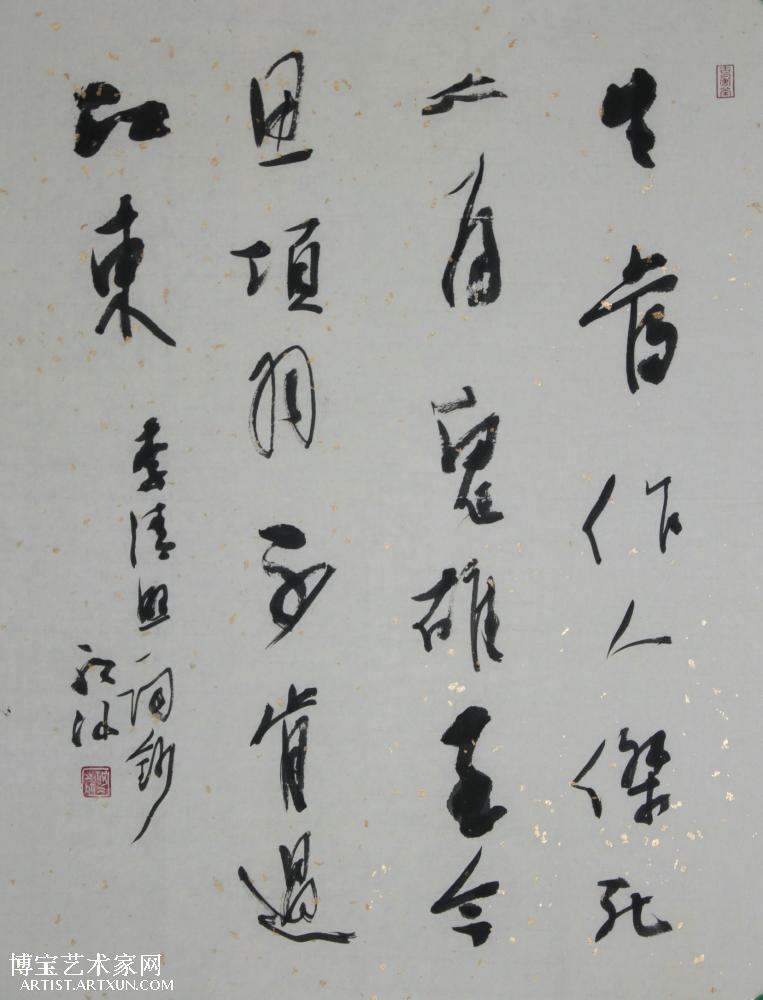 生當作人傑死
亦為鬼雄至今
思項羽不肯過
江東
李清照詞鈔
博宝艺术家网
ARTIST.ARTXUN.COM